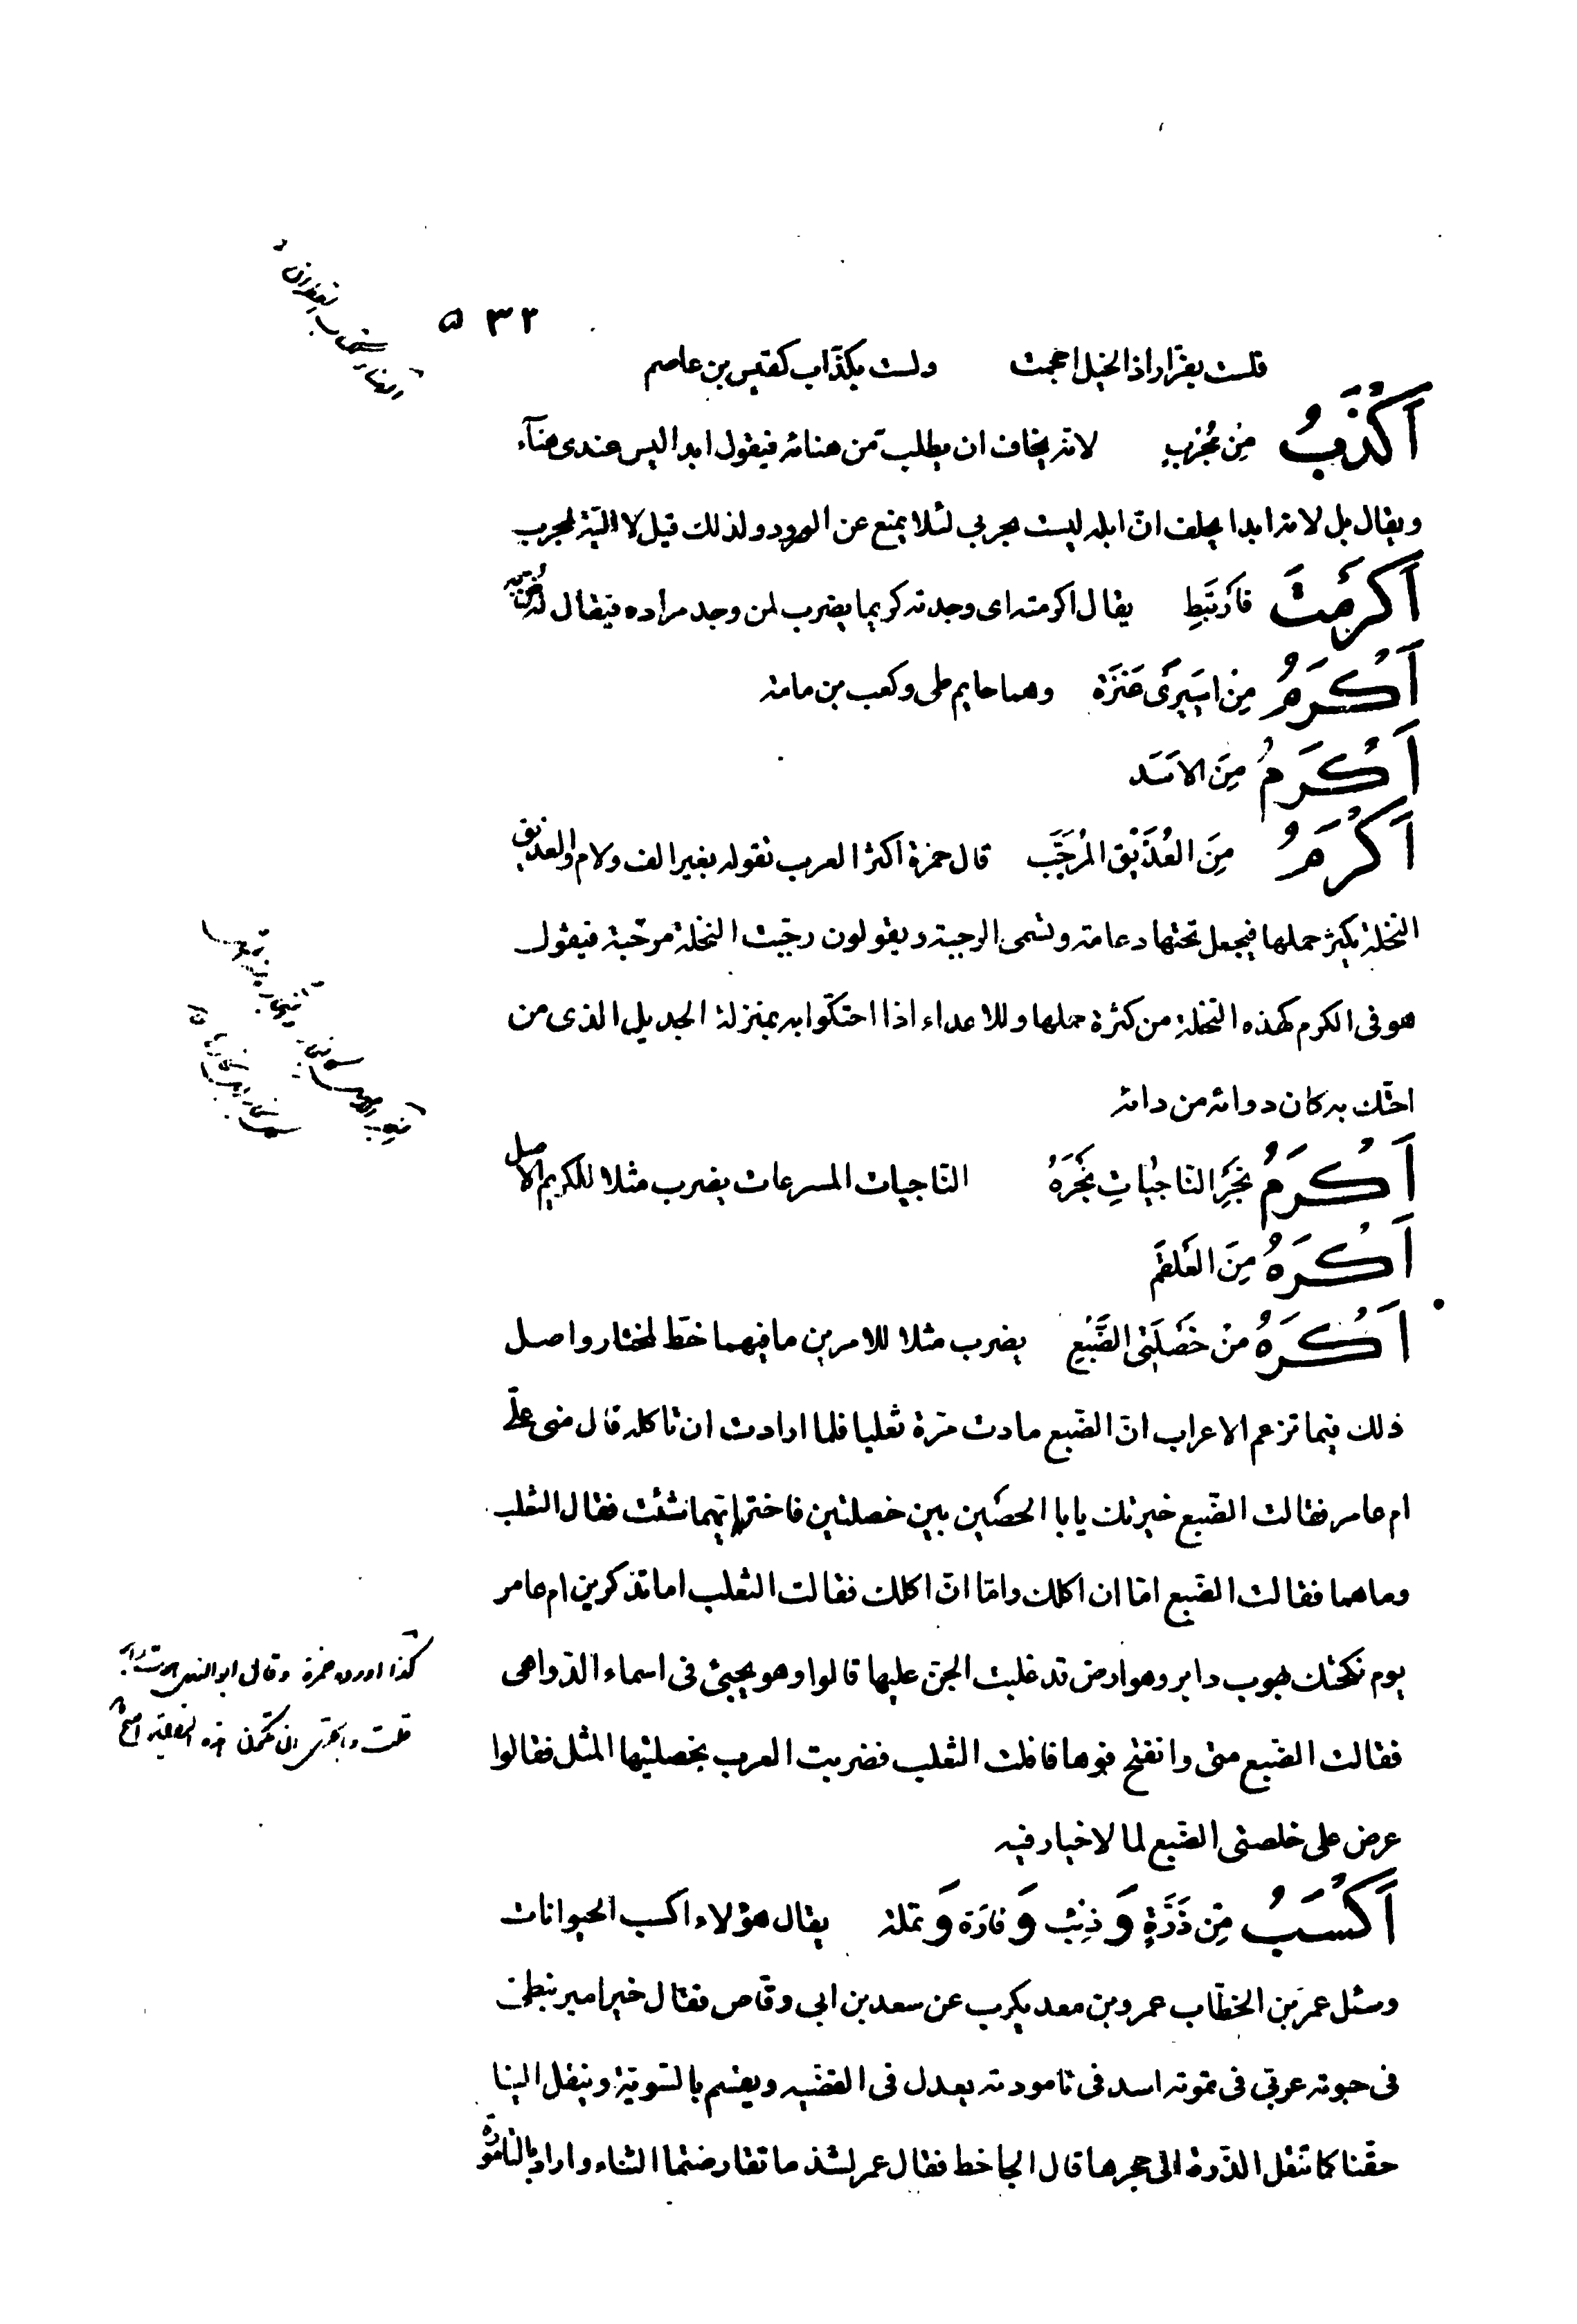 ٥٣٢
فلست بفرّار اذا الخيل احجمت ولست بكذّاب كقيس بن عاصم
اَكْذَبُ مِنْ مُجْرِبٍ لانه يخاف ان يطلب من هنائه فيقول ابدا ليس عندى هنآء
ويقال بل لانه ابدا يحلف انّ ابله ليست بجربى لئلا يمنع عن الورود ولذلك قيل لا اليّة لمجرب
اَكْرَمْتَ فَارْتَبِطِ يقال اكرمته اى وجدته كريما يضرب لمن وجد مراده فيقال له
اَكْرَمُ مِنْ اَسِيرَىْ عَنَزَة وهما حاتم طى وكعب بن مامة
اَكْرَمُ مِنَ الاَسَد
اَكْرَمُ مِنَ العُذَيْقِ المُرَجَّب قال حمزة اكثر العرب تقوله بغير الف ولام والعذيق
النخلة يكثر حملها فيجعل تحتها دعامة وتسمى الرجبة ويقولون رجّبت النخلة مرجّبة فيقول
هو فى الكرم كهذه النخلة من كثرة حملها وللاعداء اذا احتكّوا به بمنزلة الجديل الذى من
احتك به كان دوائه من دائه
اَكْرَمُ نَجْرِ النّاجِيَاتِ نَجْرُهُ النّاجيات المسرعات يضرب مثلا للكريم الاصل
اَكْرَهُ مِنَ العَلقَم
اَكْرَهُ مِنْ خَصْلَتَىِ الضَّبُعِ يضرب مثلا للامرين ما فيهما حظ لمختار واصل
ذلك فيما تزعم الاعراب انّ الضّبع صادت مرّة ثعلبا فلما ارادت ان تاكله قال منى علىّ
ام عامر فقالت الضّبع خيرتك يابا الحصَين بين خصلتين فاختر ايّهما شئت فقال الثعلب
وما هما فقالت الضّبع امّا ان اكلك وامّا انّ اكلك فقالت الثعلب اما تذكرين ام عامر
يوم نكحتك بهوب دابر وهو ارض قد غلبت الجنّ عليها قالوا وهو يجيئ فى اسماء الدّواهى
فقالت الضّبع متى وانفتح فوها فافلت الثعلب فضربت العرب بخصلتيها المثل فقالوا
عرض على خلصتى الضّبع لما لا خيار فيه
اَكْسَبُ مِّن ذَرَّةٍ وَ ذِئْب وَ فارَة وَ نملة يقال هؤلاء اكسب الحيوانات
وسئل عمر بن الخطّاب عمرو بن معد يكرب عن سعد بن ابى وقّاص فقال خير امير نبطىّ
فى حبوته عربىّ فى نمرته اسد فى تامورته يعدل فى القضيه ويقسم بالسّوية وينقل الينا
حقّنا كما تنقل الذّرة الى جحرها قال الجاحظ فقال عمر لشد ما تقارضتما الثناء واراد بالتامورة
كذا اورده حمزة وقال ابو الندى
قلت